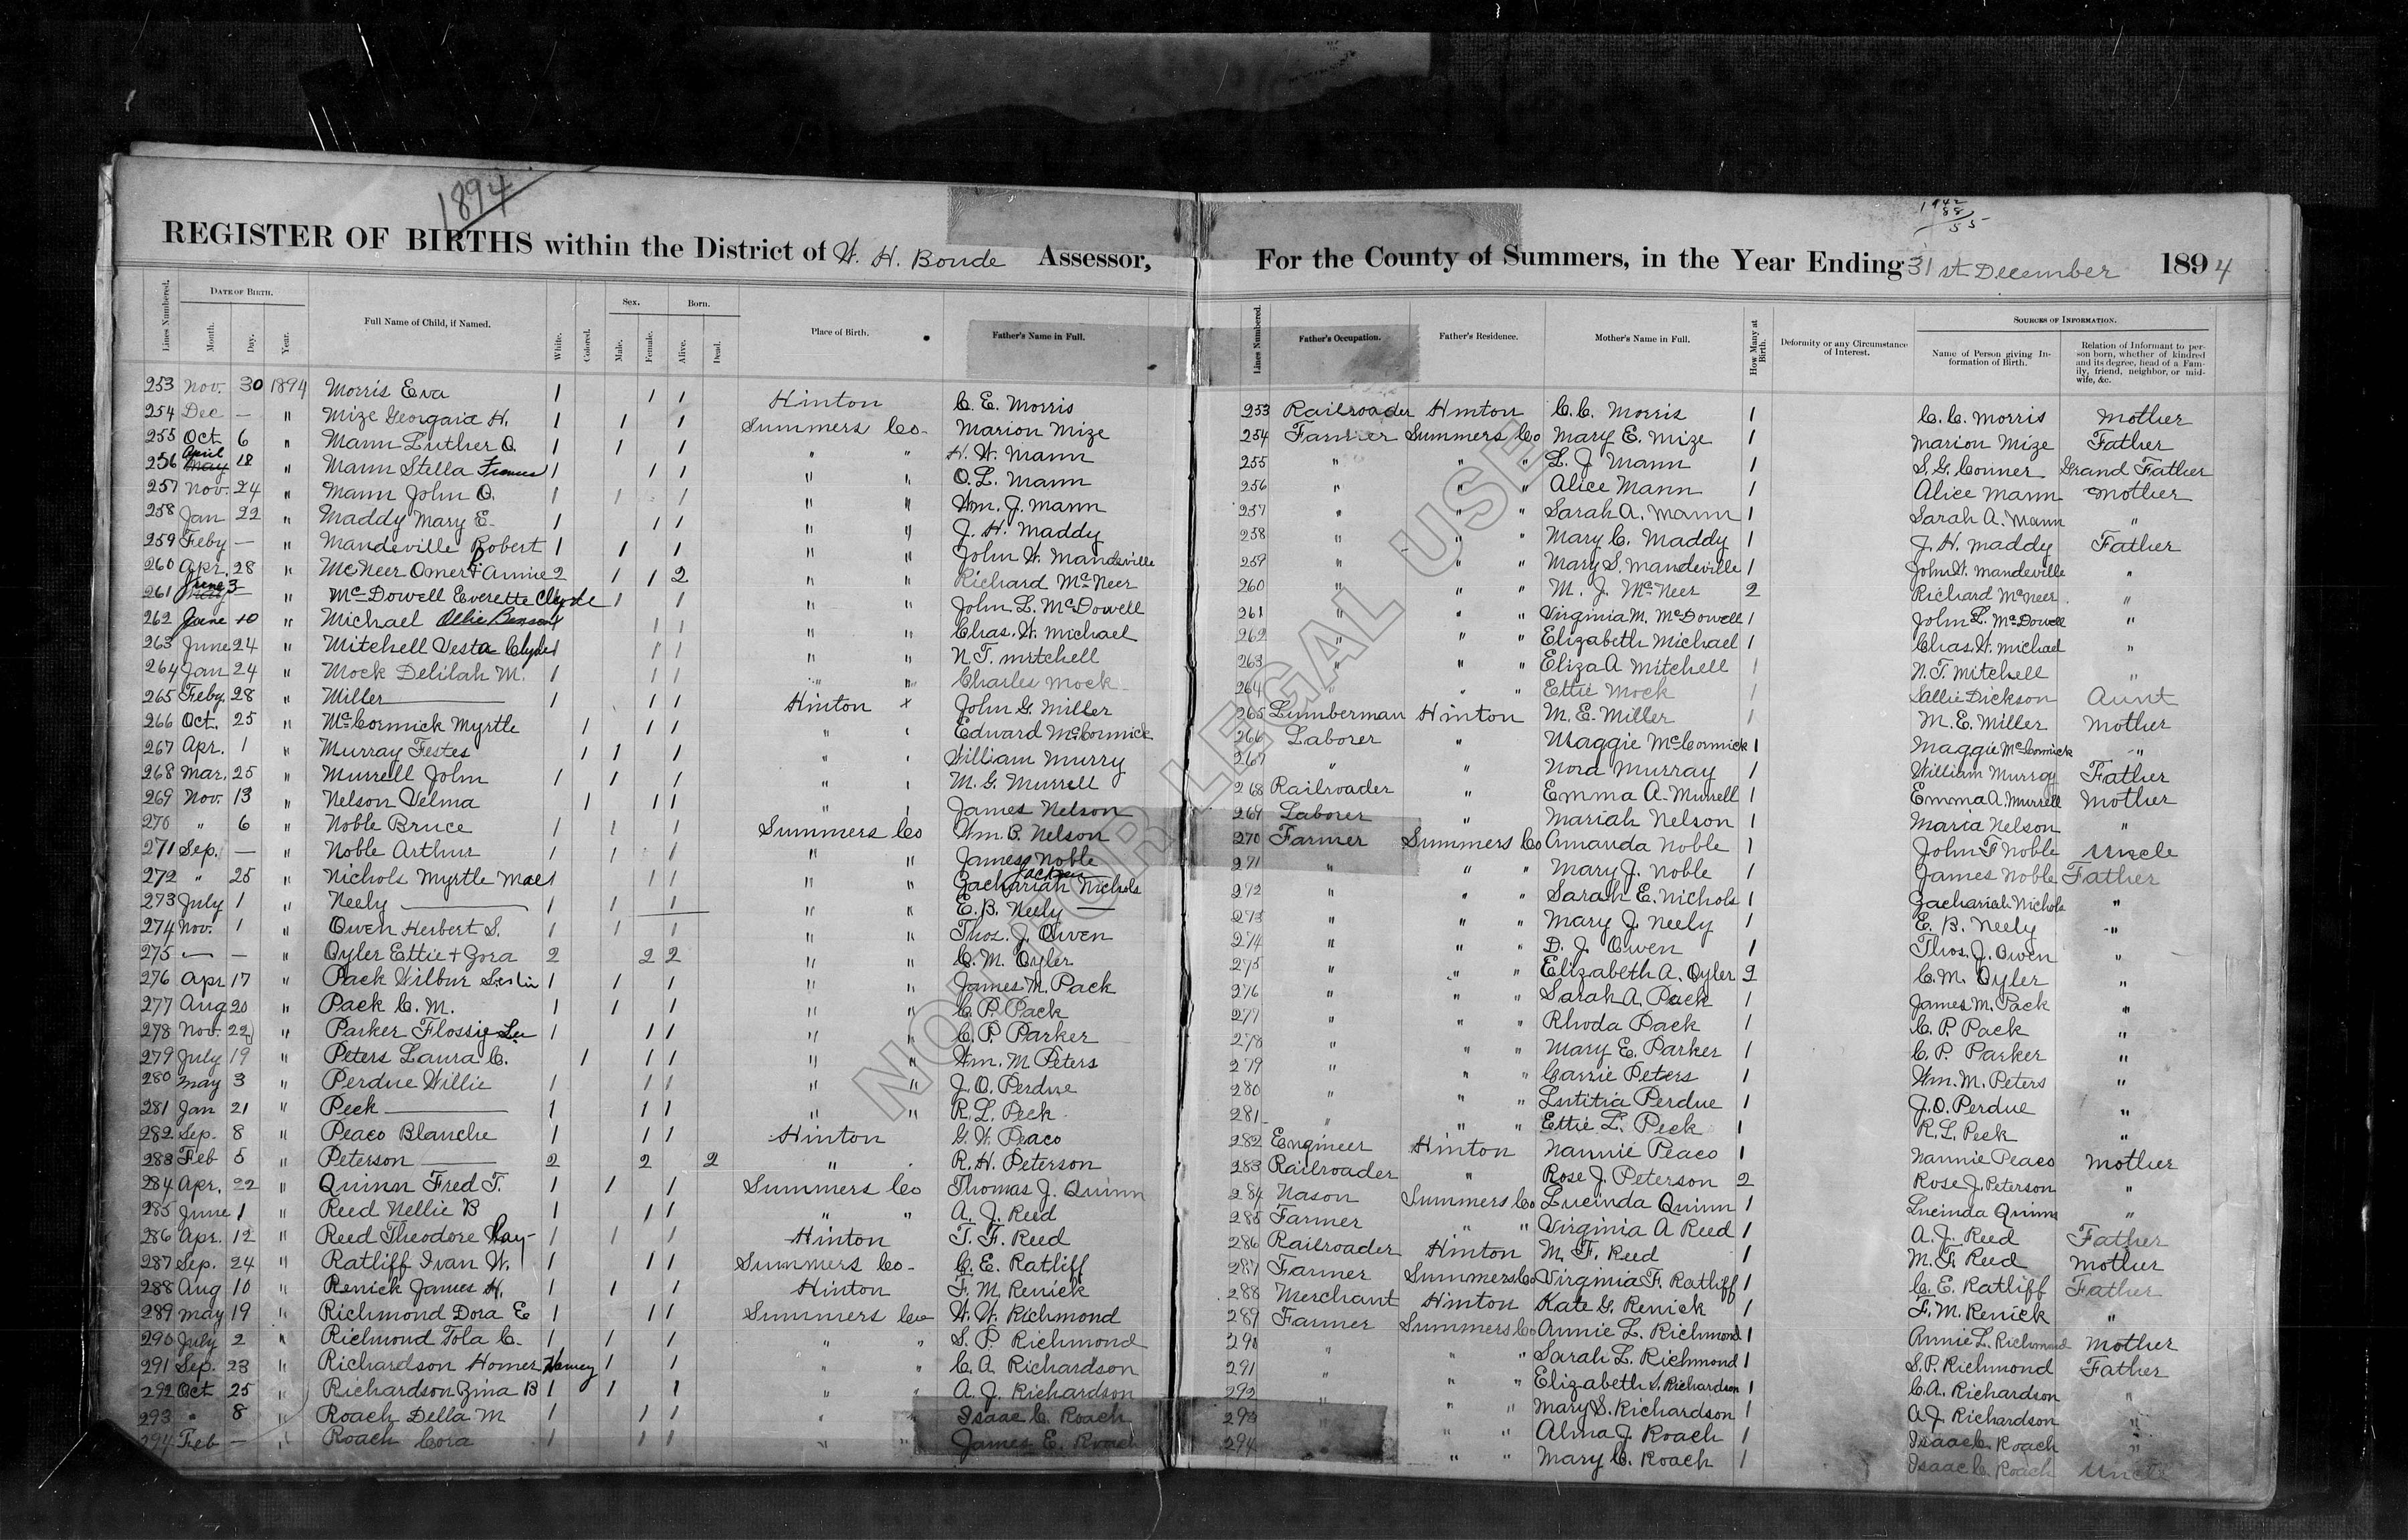 1894
REGISTER OF BIRTHS within the District of W. H. Boude Assessor,
Lines Numbered. DATE OF BIRTH. Month. Day. Year. Full Name of Child, if Named. White. Colored. Sex. Male. Female. Born. Alive. Dead. Place of Birth. Father's Name in Full.
253 Nov. 30 1894 Morris Eva 1 1 1 Hinton C. E. Morris
254 Dec — " Mize Georgaid H. 1 1 1 Summers Co- Marion Mize
255 Oct 6 " Mann Luther O. 1 1 1 " " H. W. Mann
256 April May 18 " Mann Stella Frances 1 1 1 " " O. L. Mann
257 Nov. 24 " Mann John O. 1 1 1 " " Wm. J. Mann
258 Jan 22 " Maddy Mary E- 1 1 1 " " J. H. Maddy
259 Feby — " Mandeville Robert 1 1 1 " " John W. Mandeville
260 Apr. 28 " McNeer Omer & Annie 2 1 1 2 " " Richard McNeer
261 June 3 — " McDowell Everette Clyde 1 1 " " John L. McDowell
262 June 10 " Michael Ollie Benson 1 1 1 " " Chas. W. Michael
263 June 24 " Mitchell Vesta Clyde 1 1 1 " " N. T. Mitchell
264 Jan 24 " Mock Delilah M. 1 1 1 " " Charles Mock
265 Feby. 28 " Miller — 1 1 1 Hinton x John G. Miller
266 Oct. 25 " McCormick Myrtle 1 1 1 " Edward McCormick
267 Apr. 1 " Murray Festes 1 1 1 " William Murry
268 Mar. 25 " Murrell John 1 1 1 " M. G. Murrell
269 Nov. 13 " Nelson Velma 1 1 1 " James Nelson
270 " 6 " Noble Bruce 1 1 1 Summers Co Wm. B. Nelson
271 Sep. — " Noble Arthur 1 1 1 " " James Noble
272 " 25 " Nichols Myrtle Mae 1 1 1 " " Zachariah Jackson Nichols
273 July 1 " Neely — 1 1 1 " " E. B. Neely —
274 Nov. 1 " Owen Herbert S. 1 1 1 " " Thos. J. Owen
275 — — " Oyler Ettie + Zora 2 2 2 " " C. M. Oyler
276 Apr 17 " Pack Wilbur Leslie 1 1 1 " " James M. Pack
277 Aug 20 " Pack C. M. 1 1 1 " " C. P. Pack
278 Nov. 22 " Parker Flossie Lee 1 1 1 " " C. P. Parker
279 July 19 " Peters Laura C. 1 1 1 " " Wm. M Peters
280 May 3 " Perdue Willie 1 1 1 " " J. O. Perdue
281 Jan 21 " Peck — 1 1 1 " " R. L. Peck
282 Sep. 8 " Peaco Blanche 1 1 1 Hinton G. W. Peaco
283 Feb 5 " Peterson — 2 2 2 " R. H. Peterson
284 Apr. 22 " Quinn Fred T. 1 1 1 Summers Co Thomas J. Quinn
285 June 1 " Reed Nellie B 1 1 1 " " A. J. Reed
286 Apr. 12 " Reed Theodore Ray 1 1 1 Hinton T. F. Reed
287 Sep. 24 " Ratliff Ivan W. 1 1 1 Summers Co- C. E. Ratliff
288 Aug 10 " Renick James H. 1 1 1 Hinton F. M. Renick
289 May 19 " Richmond Dora E 1 1 1 Summers Co W. W. Richmond
290 July 2 " Richmond Tola C. 1 1 1 " " S. P. Richmond
291 Sep. 23 " Richardson Homer Harvey 1 1 " " C. A Richardson
292 Oct 25 " Richardson Zina B 1 1 1 " " A. J. Richardson
293 " 8 " Roach Della M 1 1 1 " " Isaac C. Roach
294 Feb — " Roach Cora 1 1 1 " " James E. Roach
1942
88
55
For the County of Summers, in the Year Ending 31st December 1894
Lines Numbered. Father's Occupation. Father's Residence. Mother's Name in Full. How Many at Birth. Deformity or any Circumstance of Interest. SOURCES OF INFORMATION. Name of Person giving Information of Birth. Relation of Informant to person born, whether of kindred and its degree, head of a Family, friend, neighbor, or midwife, &c.
253 Railroader Hinton C. C. Morris 1 C. C. Morris Mother
254 Farmer Summers Co Mary E. Mize 1 Marion Mize Father
255 " " " L. J. Mann 1 S. G. Conner Grand Father
256 " " " Alice Mann 1 Alice Mann Mother
257 " " " Sarah A. Mann 1 Sarah A. Mann "
258 " " " Mary C. Maddy 1 J. H. Maddy Father
259 " " " Mary S. Mandeville 1 John W. Mandeville "
260 " " " M. J. McNeer 2 Richard McNeer "
261 " " " Virginia M. McDowell 1 John L. McDowell "
262 " " " Elizabeth Michael 1 Chas. W. Michael "
263 " " " Eliza A Mitchell 1 N. T. Mitchell "
264 " " " Ettie Mock 1 Sallie Dickson Aunt
265 Lumberman Hinton M. E. Miller 1 M. E. Miller Mother
266 Laborer " Maggie McCormick 1 Maggie McCormick "
267 " " Nora Murray 1 William Murray Father
268 Railroader " Emma A. Murrell 1 Emma A. Murrell Mother
269 Laborer " Mariah Nelson 1 Maria Nelson "
270 Farmer Summers Co Amanda Noble 1 John F Noble Uncle
271 " " " Mary J. Noble 1 James Noble Father
272 " " " Sarah E. Nichols 1 Zachariah Nichols "
273 " " " Mary J. Neely 1 E. B. Neely "
274 " " " D. J. Owen 1 Thos. J. Owen "
275 " " " Elizabeth A. Oyler 2 C. M. Oyler "
276 " " " Sarah A. Pack 1 James M. Pack "
277 " " " Rhoda Pack 1 C. P. Pack "
278 " " " Mary E. Parker 1 C. P. Parker "
279 " " " Carrie Peters 1 Wm. M. Peters "
280 " " " Lutitia Perdue 1 J. O. Perdue "
281 " " " Ettie L. Peck 1 R. L. Peck "
282 Engineer Hinton Nannie Peaco 1 Nannie Peaco Mother
283 Railroader " Rose J. Peterson 2 Rose J. Peterson "
284 Nason Summers Co Lucinda Quinn 1 Lucinda Quinn "
285 Farmer " " Virginia A Reed 1 A. J. Reed Father
286 Railroader Hinton M. F. Reed 1 M. F. Reed Mother
287 Farmer Summers Co Virginia F. Ratliff 1 C. E. Ratliff Father
288 Merchant Hinton Kate G. Renick 1 F. M. Renick "
289 Farmer Summers Co Annie L. Richmond 1 Annie L. Richmond Mother
290 " " " Sarah L. Richmond 1 S. P. Richmond Father
291 " " " Elizabeth S. Richardson 1 C. A. Richardson "
292 " " " Mary S. Richardson 1 A. J. Richardson "
293 " " " Alma J. Roach 1 Isaac C. Roach "
294 " " Mary C. Roach 1 Isaac C. Roach Uncle
NOT FOR LEGAL USE